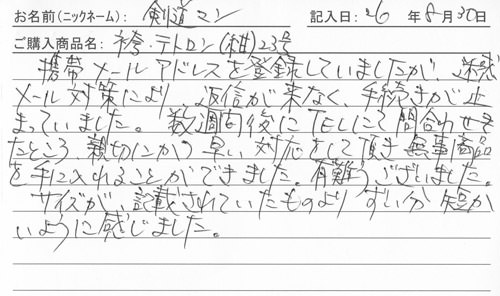 お名前(ニックネーム): 剣道マン 記入日: 26 年 8 月 30 日
ご購入商品名: 袴・テトロン(紺)23号
携帯メールアドレスを登録していましたが、迷惑
メール対策により、返信が来なく、手続きが止
まっていました。数週間後にTELにて問合わせをし
たところ、親切にかつ早い対応をして頂き無事商品
を手に入れることができました。有難うございました。
サイズが、記載されていたものよりずい分短か
いように感じました。